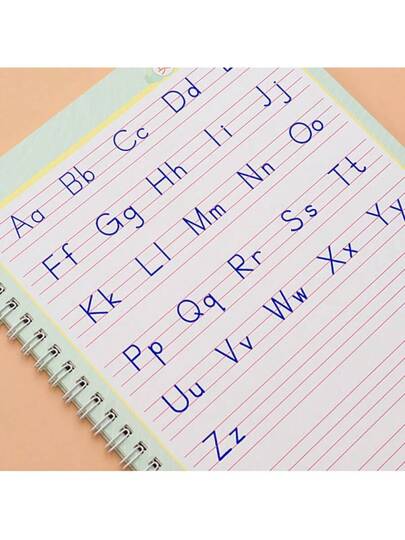 Aa Bb Cc Dd
Ff Gg Hh Ii Jj
Kk Ll Mm Nn Oo
Pp Qq Rr Ss Tt
Uu Vv Ww Xx Yy
Zz